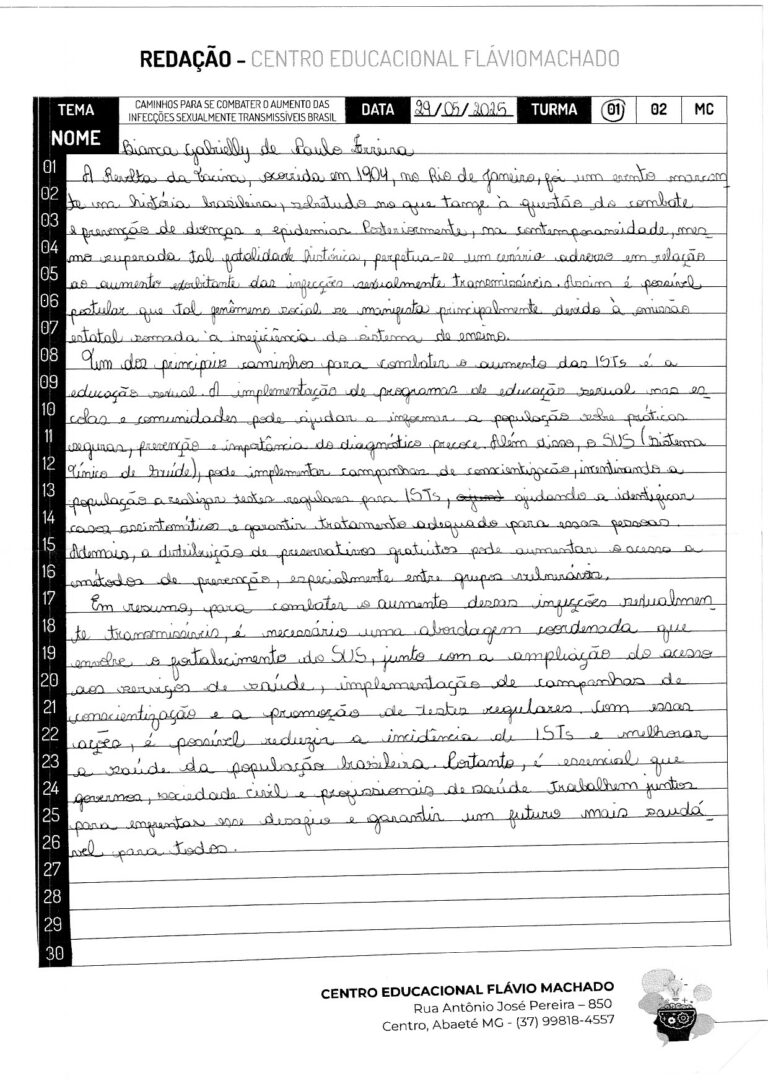 REDAÇÃO - CENTRO EDUCACIONAL FLÁVIOMACHADO
TEMA CAMINHOS PARA SE COMBATER O AUMENTO DAS INFECÇÕES SEXUALMENTE TRANSMISSÍVEIS BRASIL DATA 29/05/2025 TURMA 01 02 MC
NOME Bianca Gabrielly de Paulo Ferreira
01 A Revolta da Vacina, ocorrida em 1904, no Rio de Janeiro, foi um evento marcan
02 te na história brasileira, sobretudo no que tange à questão do combate
03 e prevenção de doenças e epidemias. Posteriormente, na contemporaneidade, mes
04 mo superada tal fatalidade histórica, perpetua-se um cenário adverso em relação
05 ao aumento exorbitante das infecções sexualmente transmissíveis. Assim é possível
06 postular que tal fenômeno social se manifesta principalmente devido à omissão
07 estatal somada à ineficiência do sistema de ensino.
08 Um dos principais caminhos para combater o aumento das ISTs é a
09 educação sexual. A implementação de programas de educação sexual nas es
10 colas e comunidades pode ajudar a informar a população sobre práticas
11 seguras, prevenção e importância do diagnóstico precoce. Além disso, o SUS (Sistema
12 Único de Saúde), pode implementar campanhas de conscientização, incentivando a
13 população a realizar testes regulares para ISTs, ajudando a identificar
14 casos assintomáticos e garantir tratamento adequado para essas pessoas.
15 Ademais, a distribuição de preservativos gratuitos pode aumentar o acesso a
16 métodos de prevenção, especialmente entre grupos vulneráveis.
17 Em resumo, para combater o aumento dessas infecções sexualmen
18 te transmissíveis, é necessário uma abordagem coordenada que
19 envolve o fortalecimento do SUS, junto com a ampliação do acesso
20 aos serviços de saúde, implementação de campanhas de
21 conscientização e a promoção de testes regulares. Com essas
22 ações, é possível reduzir a incidência de ISTs e melhorar
23 a saúde da população brasileira. Portanto, é essencial que
24 governos, sociedade civil e profissionais de saúde trabalhem juntos
25 para enfrentar esse desafio e garantir um futuro mais saudá
26 vel para todos.
27
28
29
30
CENTRO EDUCACIONAL FLÁVIO MACHADO
Rua Antônio José Pereira – 850
Centro, Abaeté MG - (37) 99818-4557